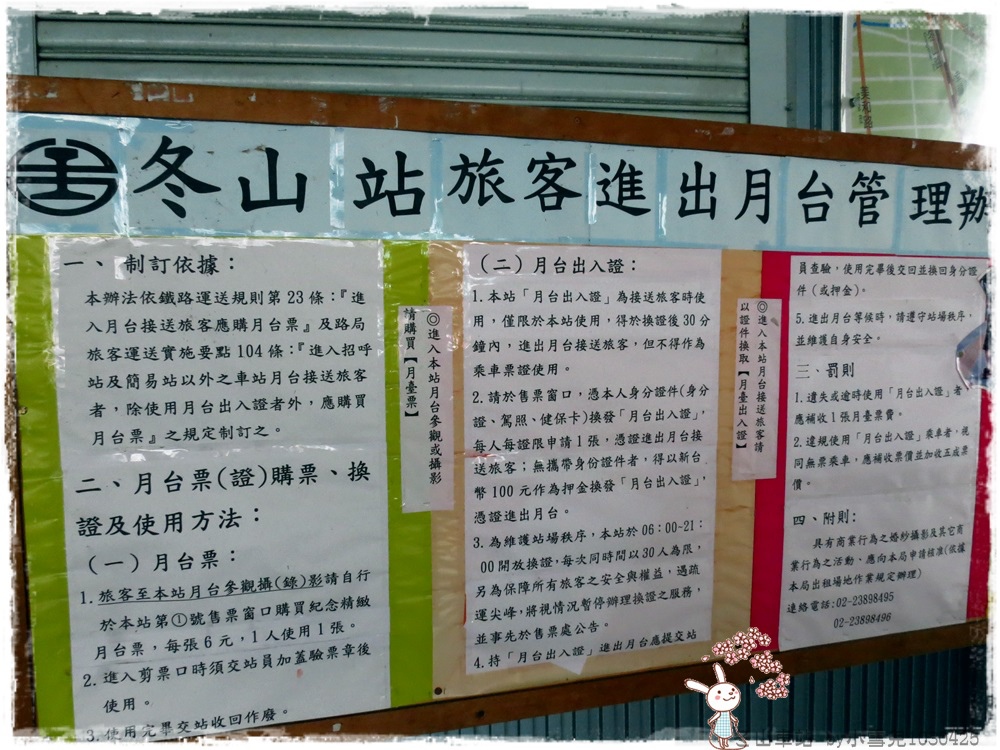 冬山站旅客進出月台管理辦
一、制訂依據：
本辦法依鐵路運送規則第23條：『進
入月台接送旅客應購月台票』及路局
旅客運送實施要點104條：『進入招呼
站及簡易站以外之車站月台接送旅客
者，除使用月台出入證者外，應購買
月台票』之規定制訂之。
二、月台票(證)購票、換
證及使用方法：
（一）月台票：
1.旅客至本站月台參觀攝(錄)影請自行
於本站第①號售票窗口購買紀念精緻
月台票，每張6元，1人使用1張。
2.進入剪票口時須交站員加蓋驗票章後
使用。
3.使用完畢交站收回作廢。
◎進入本站月台參觀或攝影
請購買【月臺票】
（二）月台出入證：
1.本站「月台出入證」為接送旅客時使
用，僅限於本站使用，得於換證後30分
鐘內，進出月台接送旅客，但不得作為
乘車票證使用。
2.請於售票窗口，憑本人身分證件(身分
證、駕照、健保卡)換發「月台出入證」，
每人每證限申請1張，憑證進出月台接
送旅客；無攜帶身份證件者，得以新台
幣100元作為押金換發「月台出入證」，
憑證進出月台。
3.為維護站場秩序，本站於06：00~21：
00開放換證，每次同時間以30人為限，
另為保障所有旅客之安全與權益，遇疏
運尖峰，將視情況暫停辦理換證之服務，
並事先於售票處公告。
4.持「月台出入證」進出月台應提交站
◎進入本站月台接送旅客請
以證件換取【月臺出入證】
員查驗，使用完畢後交回並換回身分證
件（或押金）。
5.進出月台等候時，請遵守站場秩序，
並維護自身安全。
三、罰則
1.遺失或逾時使用「月台出入證」者，
應補收1張月臺票費。
2.違規使用「月台出入證」乘車者，視
同無票乘車，應補收票價並加收五成票
價。
四、附則：
具有商業行為之婚紗攝影及其它商
業行為之活動、應向本局申請核准(依據
本局出租場地作業規定辦理)
連絡電話:02-23898495
02-23898496